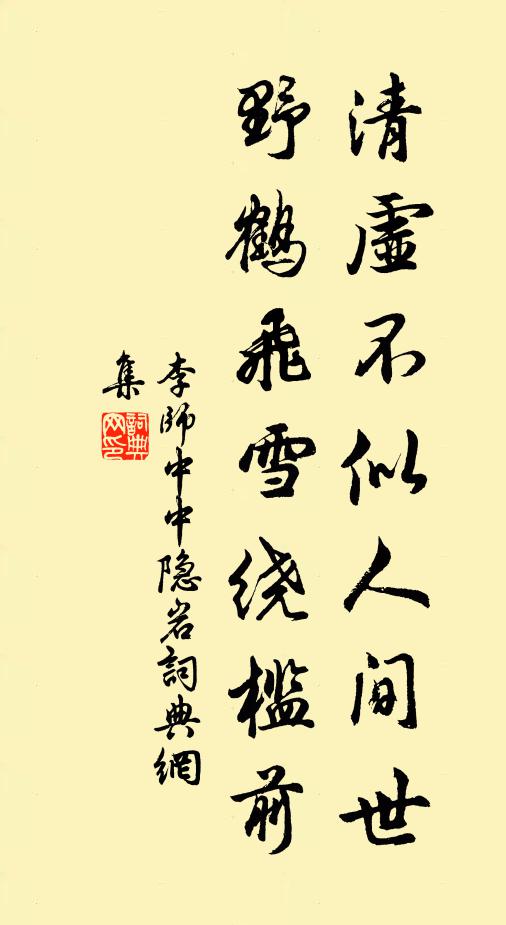 清虚不似人间世
野鹤飞雪绕槛前
李师中中隐岩詞典網
集
詞典网印